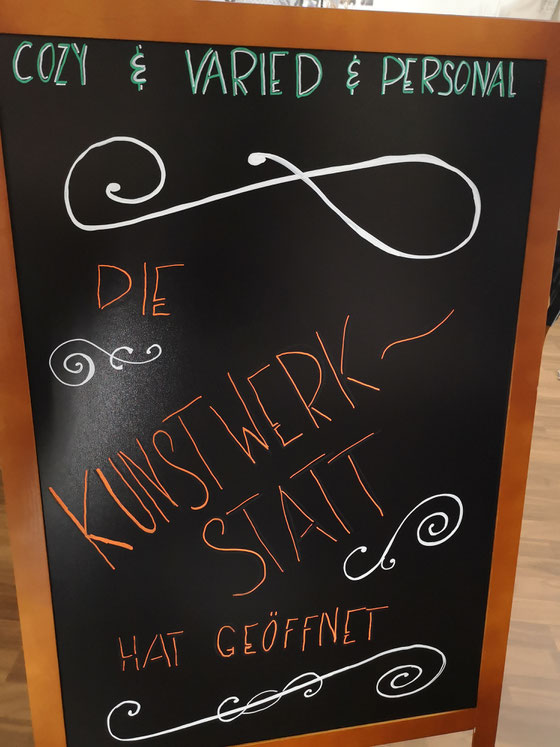 COZY & VARIED & PERSONAL
DIE
KUNSTWERK-
STATT
HAT GEÖFFNET